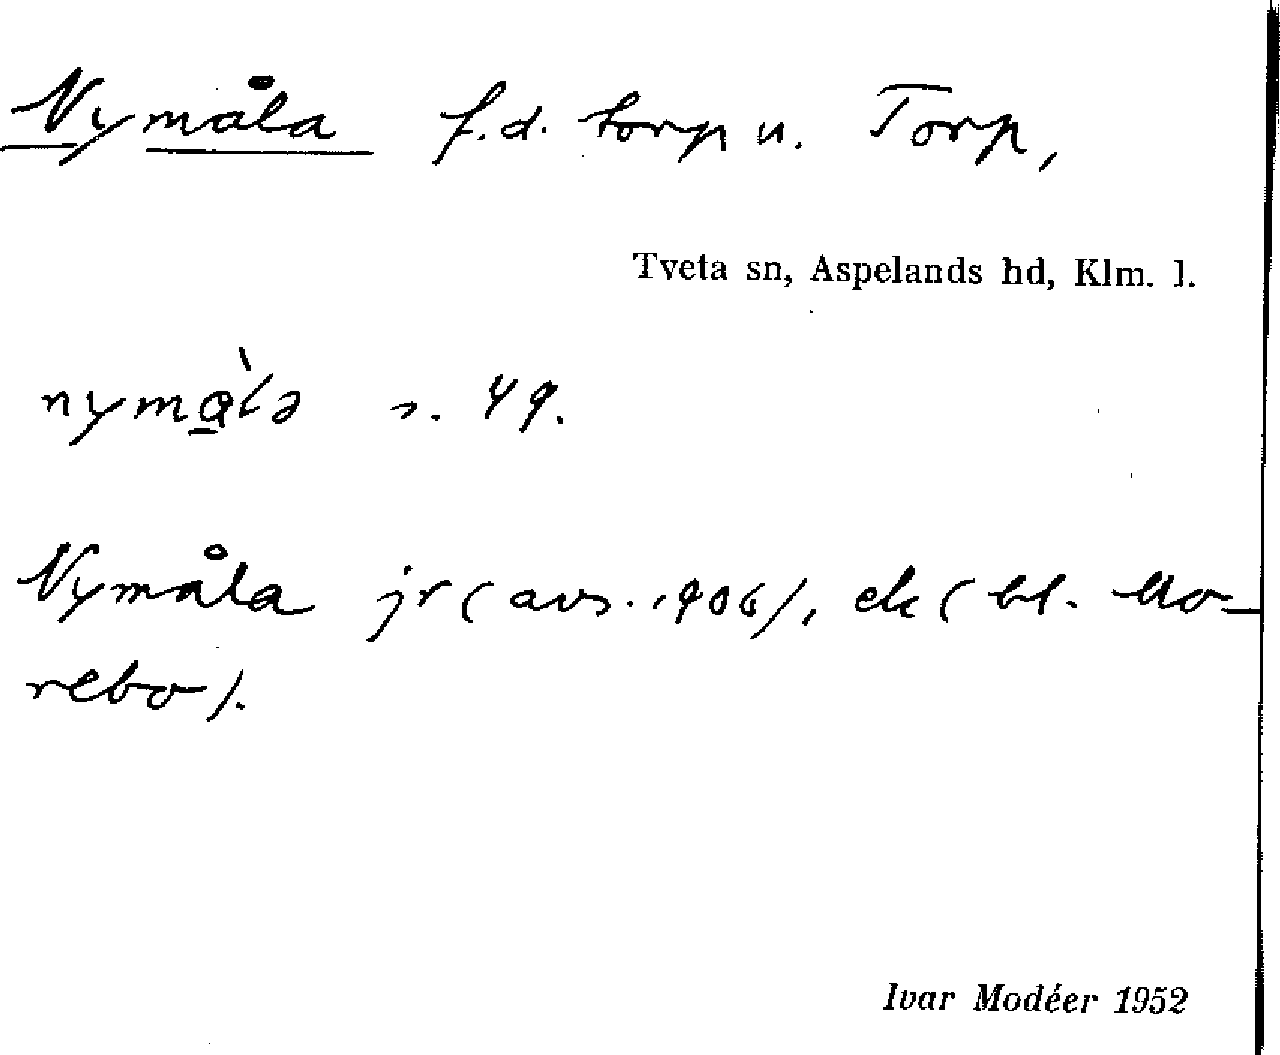 Nymåla f.d. torp u. Torp,
Tveta sn, Aspelands hd, Klm. l.
s. 49.
Nymåla jr (avs. 1906), ek (bl. Mo-
rebo).
Ivar Modéer 1952